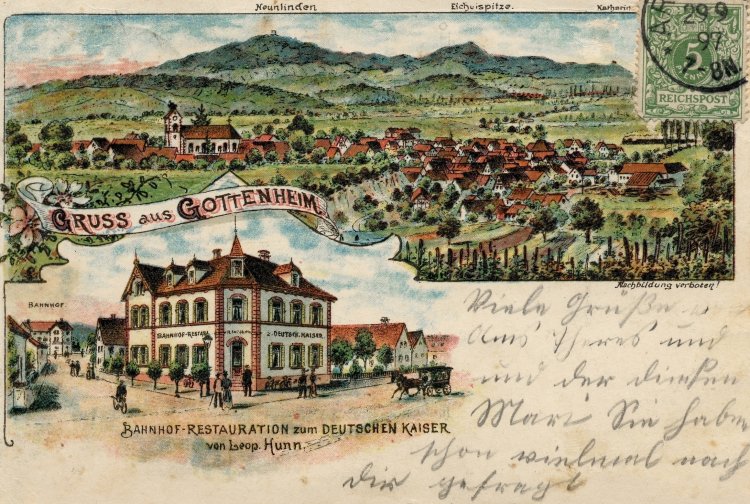 Neunlinden Eichelspitze. Katharin
29 9
97
2-
BN
5
REICHSPOST
GRUSS aus GOTTENHEIM.
Nachbildung verboten!
BAHNHOF.
BAHNHOF-RESTAU z. DEUTSCH. KAISER
BAHNHOF-RESTAURATION zum DEUTSCHEN KAISER
von Leop. Hunn.
Viele Grüße
und
und der
Mari Sie habe
schon vielmal nach
Dir gefragt